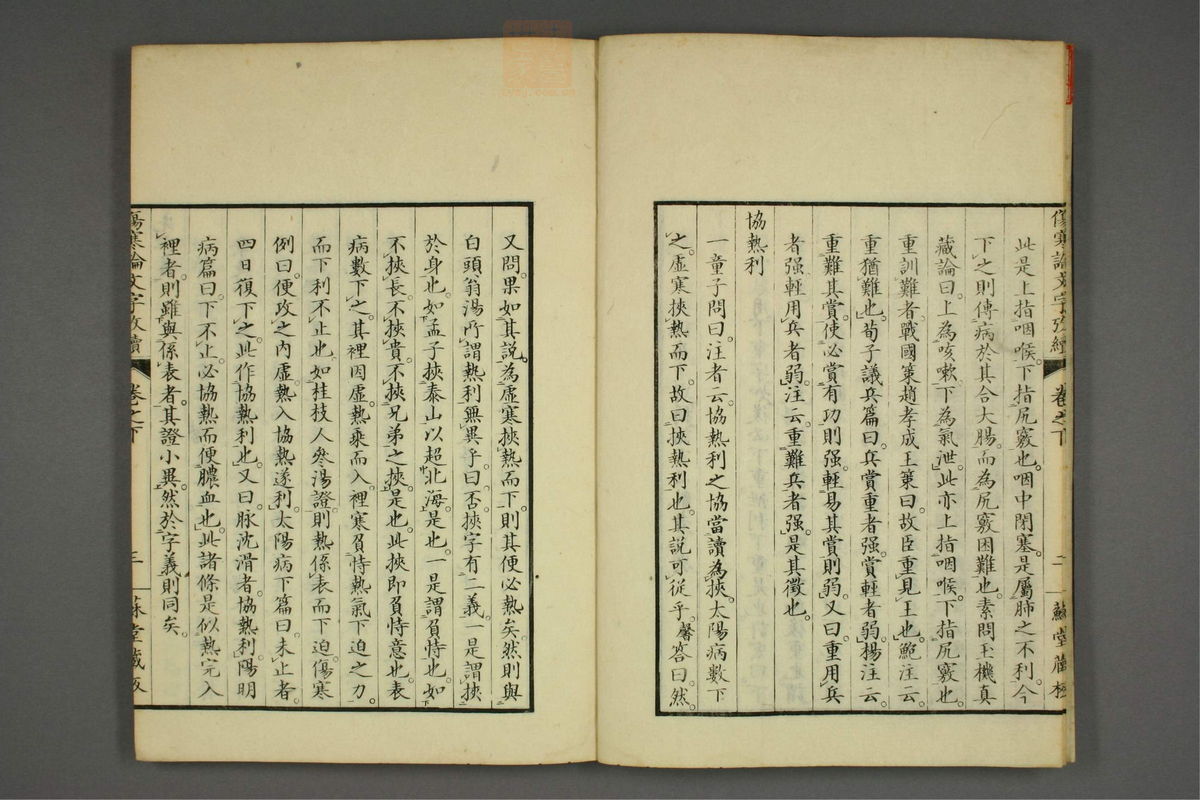 此是上指咽喉。下指尻竅也。咽中閉塞。是屬肺之不利。今
下之則傳病於其合大腸。而為尻竅困難也。素問玉機真
藏論曰。上為咳嗽。下為氣泄。此亦上指咽喉。下指尻竅也。
重訓難者。戰國策趙孝成王策曰。故臣重見王也。鮑注云。
重猶難也。荀子議兵篇曰。兵賞重者强。賞輕者弱。楊注云。
重難其賞。使必賞有功則强。輕易其賞則弱。又曰。重用兵
者强。輕用兵者弱。注云。重難兵者强。是其徵也。
協熱利
一童子問曰。注者云。協熱利之協。當讀為挾。太陽病數下
之。虛寒挾熱而下。故曰挾熱利也。其說可從乎。馨答曰。然。
又問。果如其說。為虛寒挾熱而下。則其便必熱矣。然則與
白頭翁湯所謂熱利無異乎。曰。否。挾字有二義。一是謂挾
於身也。如孟子挾泰山以超北海。是也。一是謂負恃也。如
不挾長。不挾貴。不挾兄弟之挾。是也。此挾即負恃意也。表
病數下之。其裡因虛。熱乘而入。裡寒負恃熱氣下迫之力。
而下利不止也。如桂枝人參湯證。則熱係表而下迫。傷寒
例曰。便攻之。內虛熱入。協熱遂利。太陽病下篇曰。未止者。
四日復下之。此作協熱利也。又曰。脉沈滑者。協熱利。陽明
病篇曰。下不止。必協熱而便膿血也。此諸條是似熱完入
裡者。則雖與係表者。其證小異。然於字義則同矣。
傷寒論文字攷續 卷之下 二
傷寒論文字攷續 卷之下 三